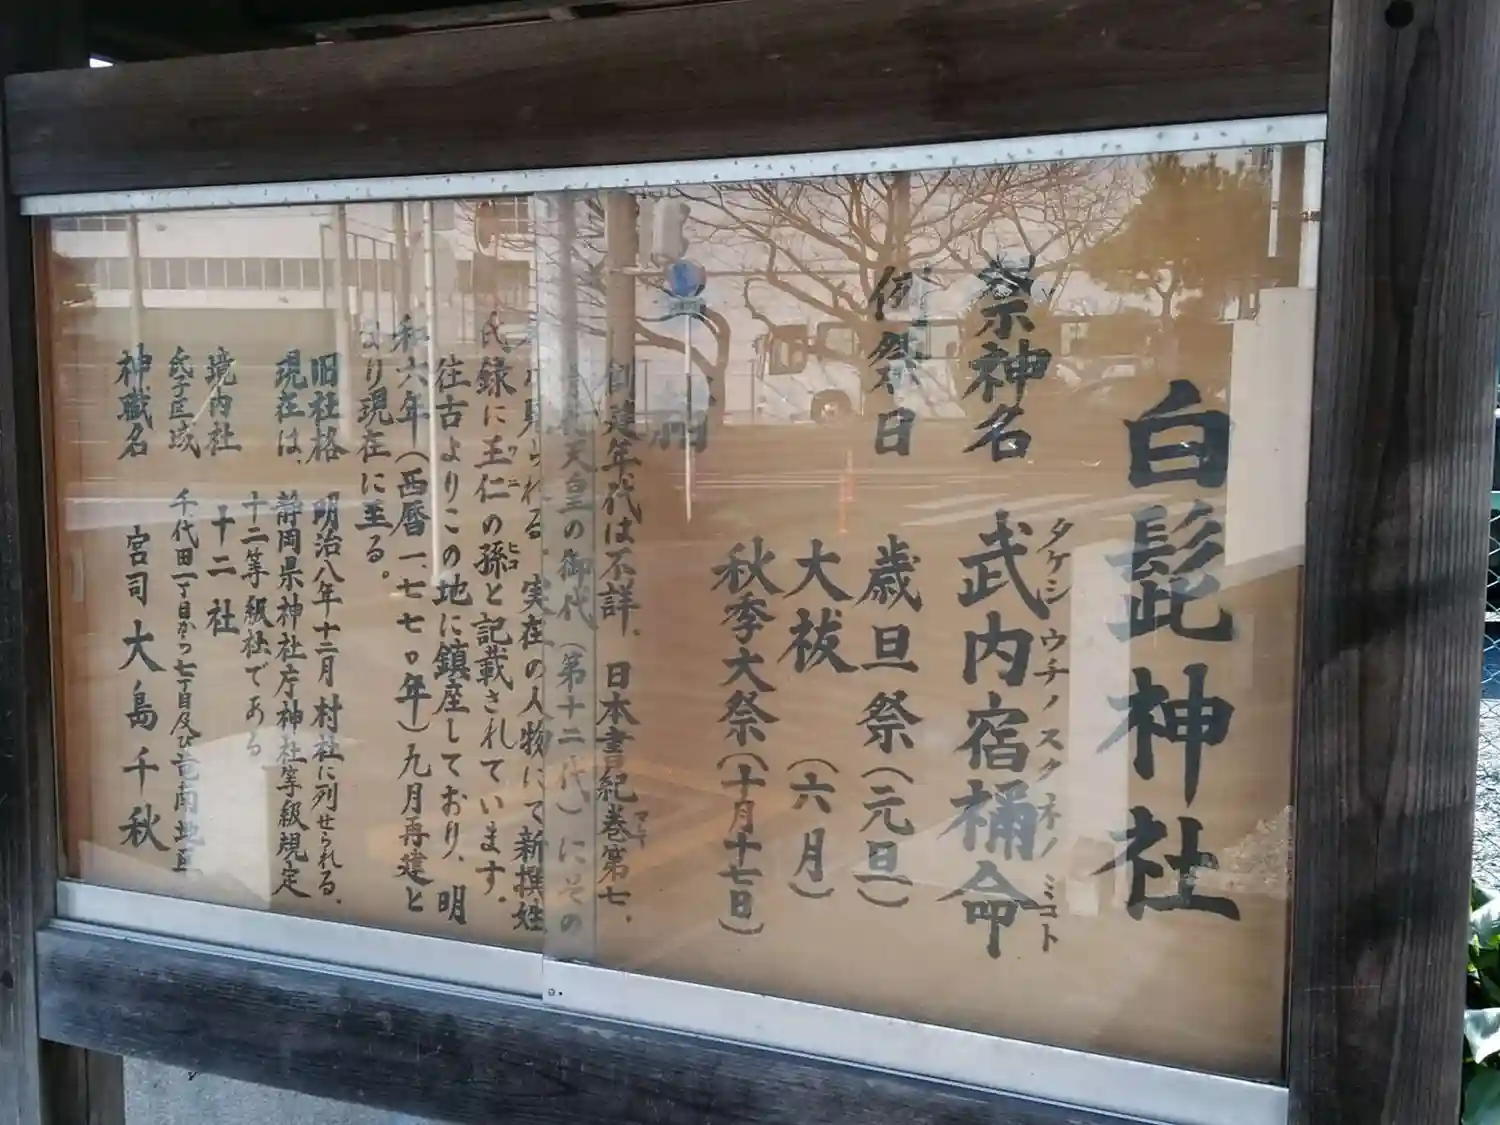 白髭神社
祭神名 武内宿祢命
タケシ ウチノ スクネノ ミコト
例祭日 歳旦祭(元旦)
大祓 (六月)
秋季大祭(十月十七日)
創建年代は不詳、日本書紀巻第七、
マキ
天皇の御代(第十二代)にその
見られる。実在の人物にて新撰姓
氏録に王仁の孫と記載されています。
ワニ ヒコ
往古よりこの地に鎮座しており、明
和六年(西暦一、七七〇年)九月再建と
より現在に至る。
旧社格 明治八年十二月 村社に列せられる、
現在は、静岡県神社庁神社等級規定
十二等級社である
境内社 十二社
氏子区域 千代田一丁目から七丁目及び竜南地区
神職名 宮司 大島千秋